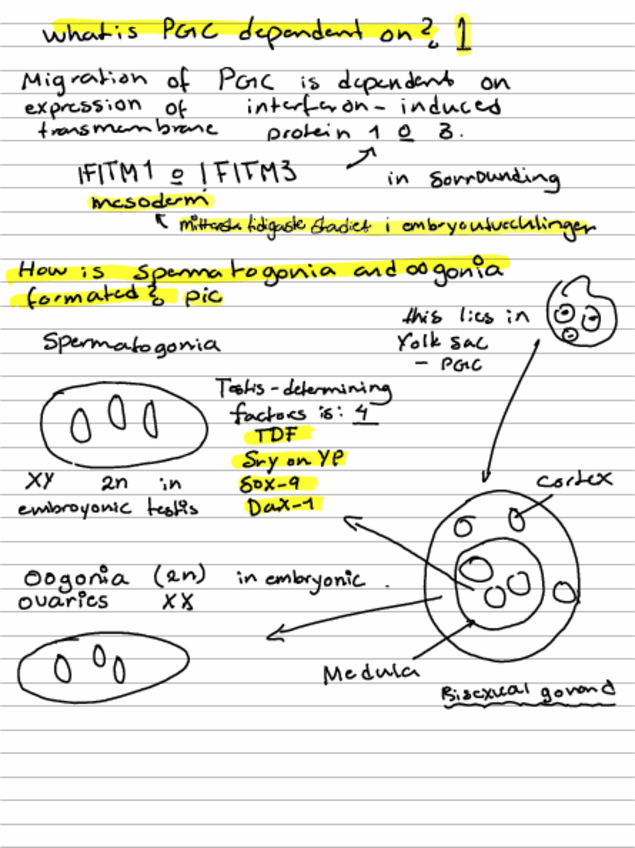 What is PGC dependent on? 1
Migration of PGC is dependent on
expression of interferon-induced
transmembrane protein 1 o 3.
IFITM1 o IFITM3 in sorrounding
mesoderm
tidigaste stadiet i embryoutvecklingen
How is spermatogonia and oogonia
formated? pic
this lies in
Yolk sac
- PGC
Spermatogonia
Testis-determining
factors is: 4
TDF
Sry on YP
Sox-9
Dax-1
XY 2n in
embroyonic testis
cortex
Oogonia (2n) in embryonic.
ovaries XX
Medula
Bisexual gonand